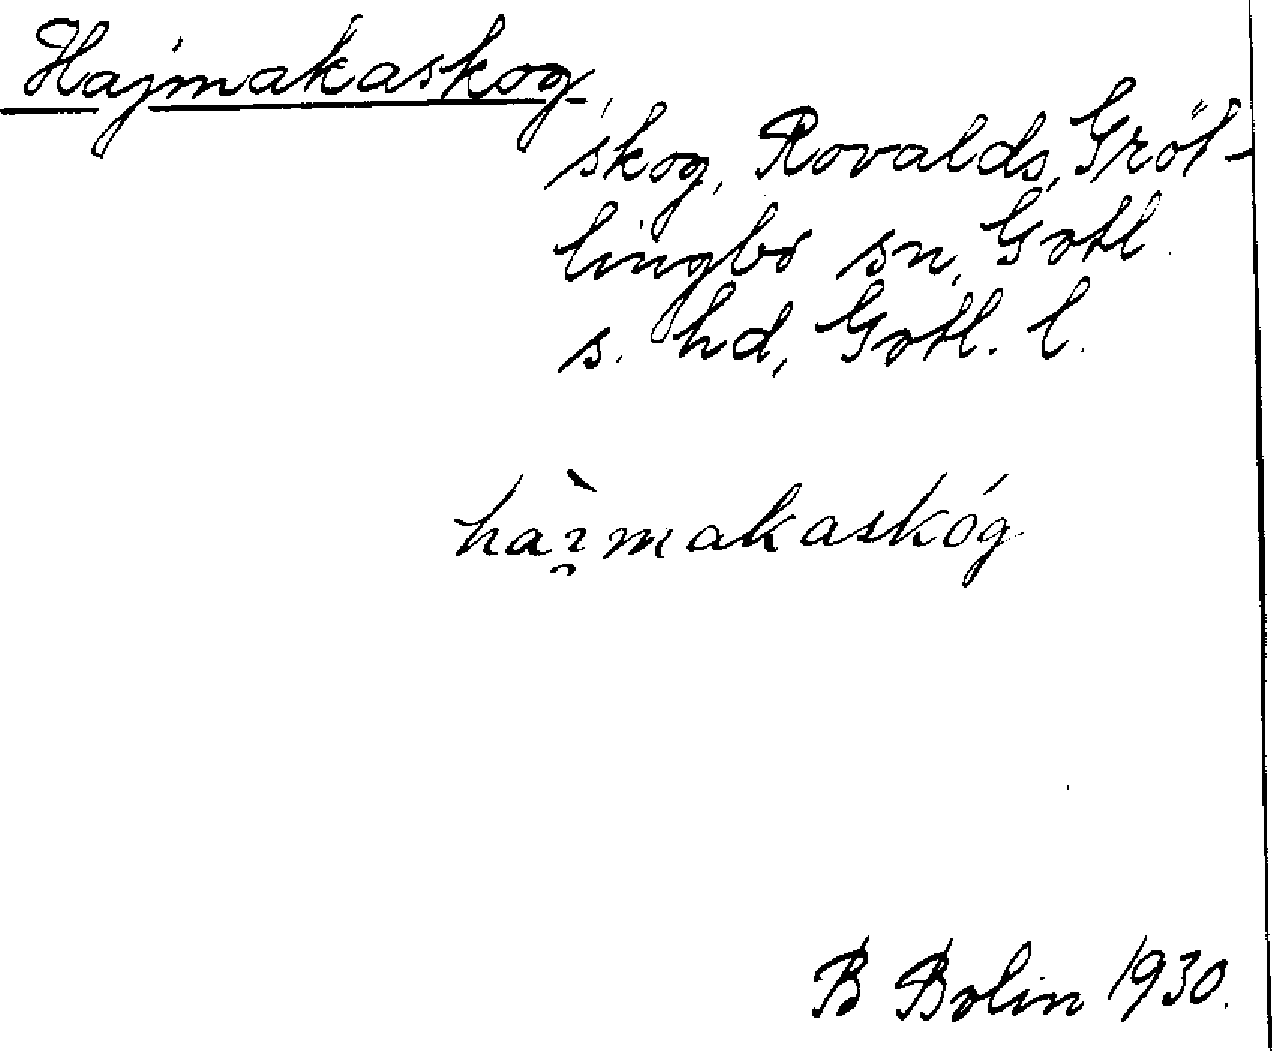 Hajmakaskog
skog, Rovalds, Gröt-
lingbo sn, Gotl.
s. hd, Gotl. l.
haı̯̀makaskóg
B Bolin 1930.